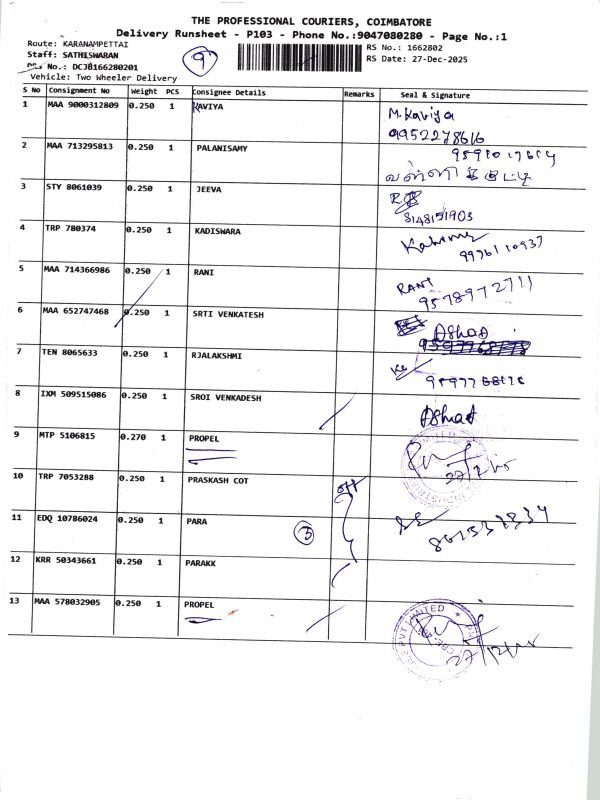 THE PROFESSIONAL COURIERS, COIMBATORE
Delivery Runsheet - P103 - Phone No.:9047080280 - Page No.:1
Route: KARANAMPETTAI
RS No.: 1662802
Staff: SATHISWARAN
9
RS Date: 27-Dec-2025
No.: DCJB166280201
Vehicle: Two Wheeler Delivery
S No Consignment No Weight PCS Consignee Details Remarks Seal & Signature
1 MAA 9000312809 0.250 1 KAVIYA M.Kaviya
9952278616
2 MAA 713295813 0.250 1 PALANISAMY
வள்ளி
3 STY 8061039 0.250 1 JEEVA
8148151903
4 TRP 780374 0.250 1 KADISWARA
9976110937
5 MAA 714366986 0.250 1 RANI RANI
9578972711
6 MAA 652747468 0.250 1 SRTI VENKATESH Ashad
7 TEN 8065633 0.250 1 RJALAKSHMI
8 IXM 509515086 0.250 1 SROI VENKADESH Ashad
9 MTP 5106815 0.270 1 PROPEL
10 TRP 7053288 0.250 1 PRASKASH COT off
11 EDQ 10786024 0.250 1 PARA 3
12 KRR 50343661 0.250 1 PARAKK
13 MAA 578032905 0.250 1 PROPEL
PVT LIMITED
27/12/25